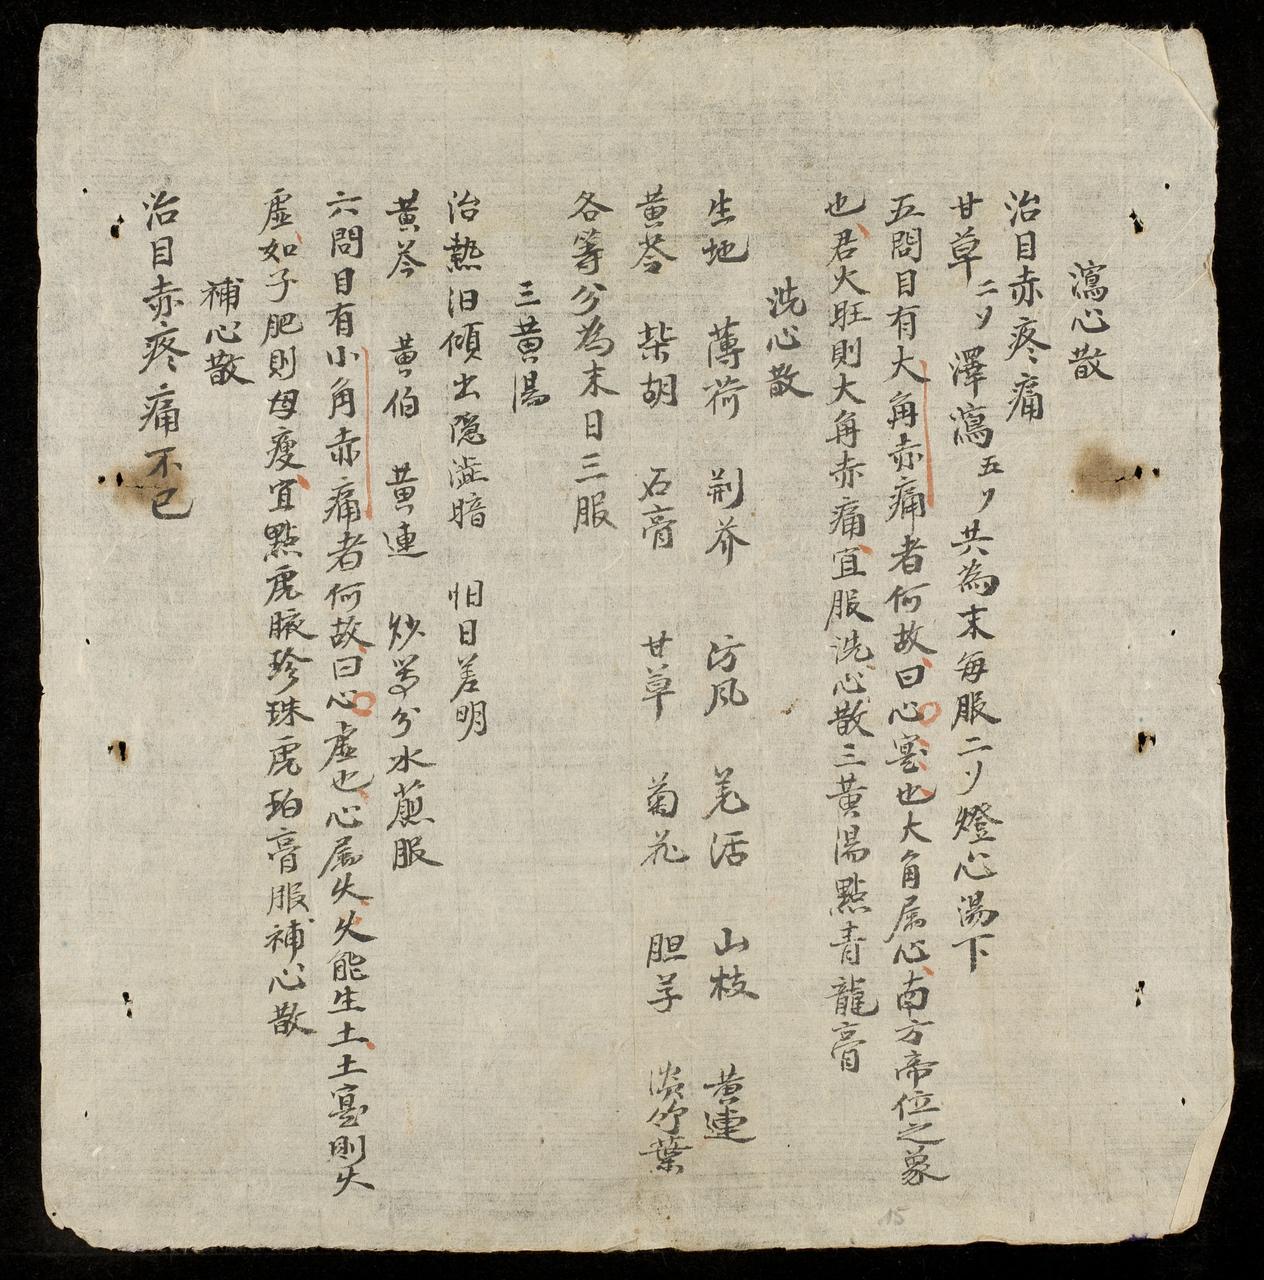 瀉心散
治目赤疼痛
甘草二ソ澤瀉五ソ共為末每服二ソ燈心湯下
五問目有大角赤痛者何故曰心寔也大角属心南方帝位之象
也君火旺則大角赤痛宜服洗心散三黄湯點青龍膏
洗心散
生地 薄荷 荆芥 防风 羌活 山枝 黄連
黄芩 柴胡 石膏 甘草 菊花 胆草 淡竹葉
各等分為末日三服
三黄湯
治熱泪傾出隱澁暗 昨日差明
黄芩 黄伯 黄連 炒等分水煎服
六問目有小角赤痛者何故曰心虚也心属火火能生土土寔則火
虚如子肥則母瘦宜點虎腋珍珠虎珀膏服補心散
補心散
治目赤疼痛不已
15